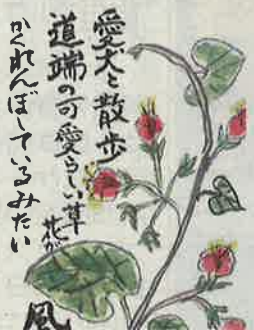 愛犬と散歩
道端の可愛らしい草
花が
かくれんぼしているみたい
風